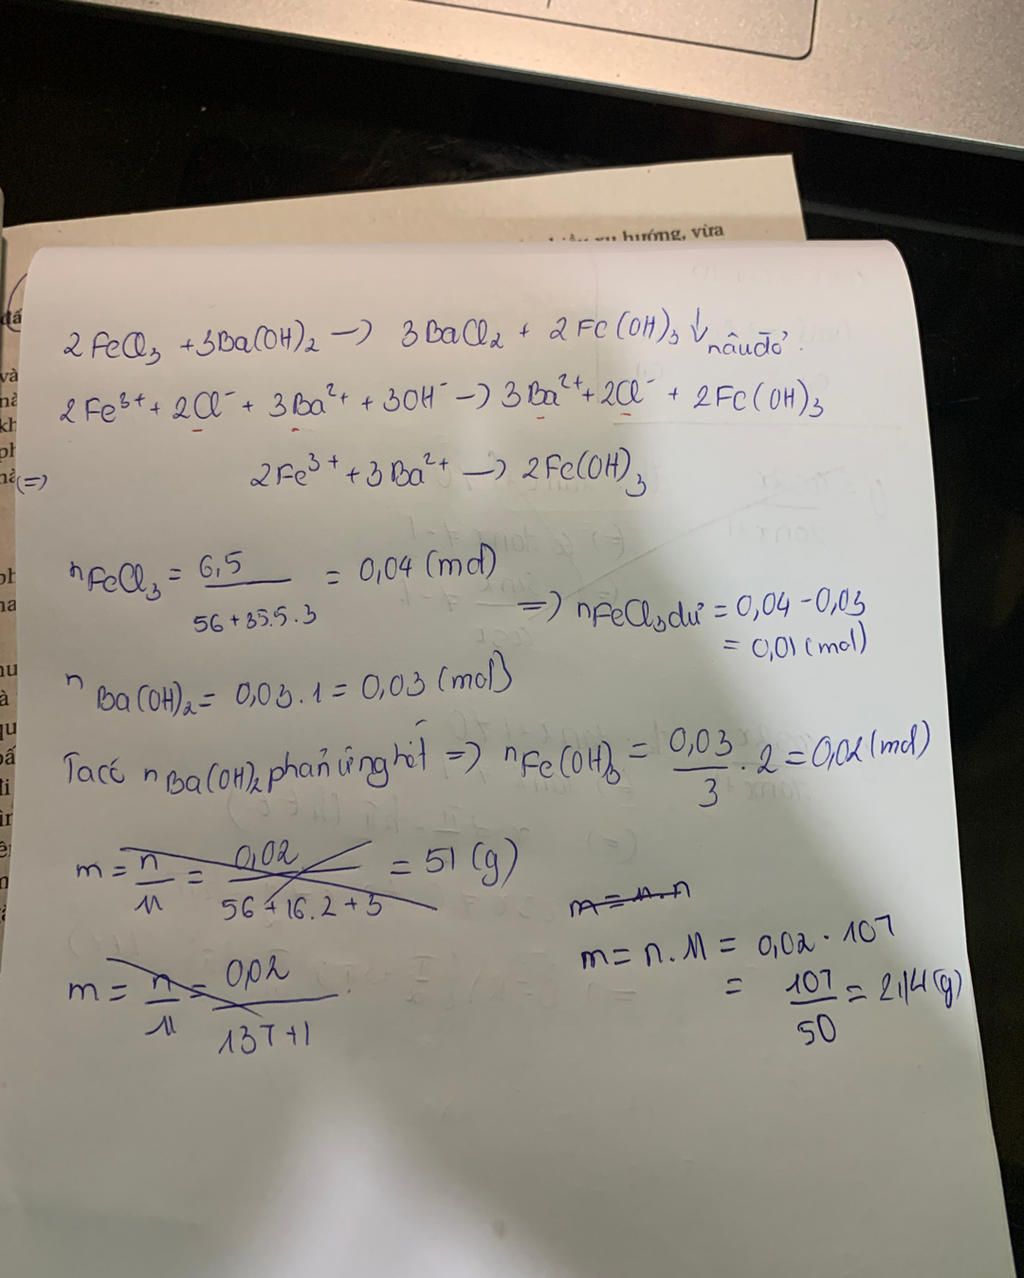 hướng, vừa
2FeCl₃ + 3Ba(OH)₂ → 3BaCl₂ + 2Fe(OH)₃ ↓ nâu đỏ.
2Fe³⁺ + 2Cl⁻ + 3Ba²⁺ + 3OH⁻ → 3Ba²⁺ + 2Cl⁻ + 2Fe(OH)₃
(=) 2Fe³⁺ + 3Ba²⁺ → 2Fe(OH)₃
nFeCl₃ = 6,5 / (56 + 35.5 . 3) = 0,04 (mol)
=> nFeCl₃ dư = 0,04 - 0,03
= 0,01 (mol)
nBa(OH)₂ = 0,03 . 1 = 0,03 (mol)
Ta có nBa(OH)₂ phản ứng hết => nFe(OH)₃ = 0,03 / 3 . 2 = 0,02 (mol)
m = n / M = 0,02 / (56 + 16.2 + 3) = 51 (g)
m = n / M = 0,02 / (137 + 1
m = M . n
m = n . M = 0,02 . 107
= 107 / 50 = 2,14 (g)